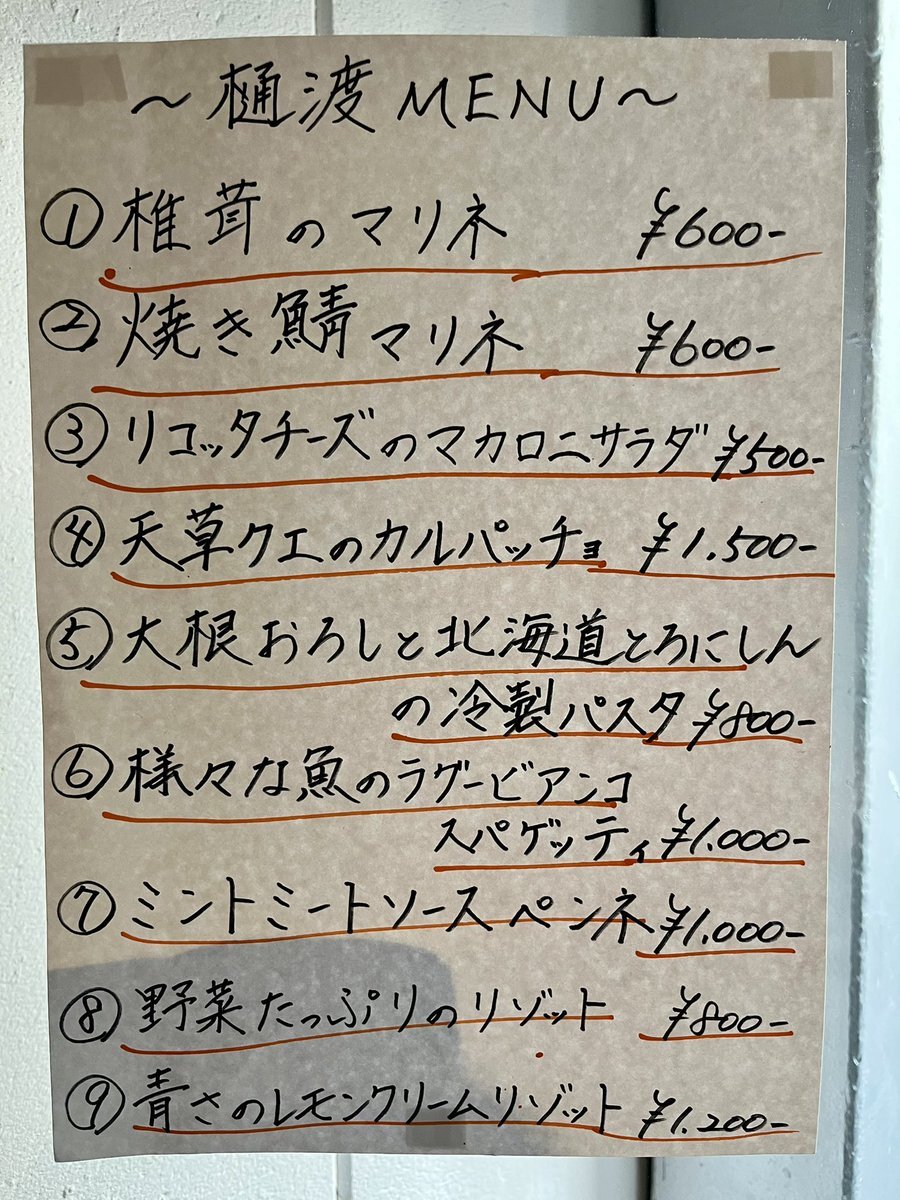 ～樋渡MENU～
① 椎茸のマリネ ¥600-
② 焼き鯖マリネ ¥600-
③ リコッタチーズのマカロニサラダ ¥500-
④ 天草クエのカルパッチョ ¥1.500-
⑤ 大根おろしと北海道とろにしん
の冷製パスタ ¥800-
⑥ 様々な魚のラグービアンコ
スパゲッティ ¥1.000-
⑦ ミントミートソースペンネ ¥1.000-
⑧ 野菜たっぷりのリゾット ¥800-
⑨ 青さのレモンクリームリゾット ¥1.200-